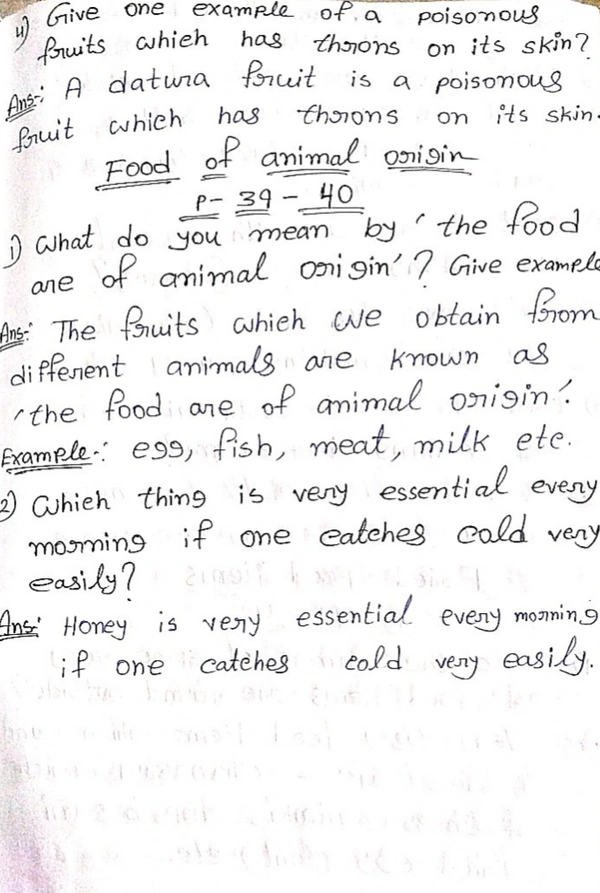 4) Give one example of a poisonous
fruits which has throns on its skin?
Ans:- A datura fruit is a poisonous
fruit which has throns on its skin.
Food of animal origin
P- 39 - 40
1) What do you mean by 'the food
are of animal origin'? Give example
Ans:- The fruits which we obtain from
different animals are known as
'the food are of animal origin'.
Example-: egg, fish, meat, milk etc.
2) Which thing is very essential every
morning if one catches cold very
easily?
Ans:- Honey is very essential every morning
if one catches cold very easily.